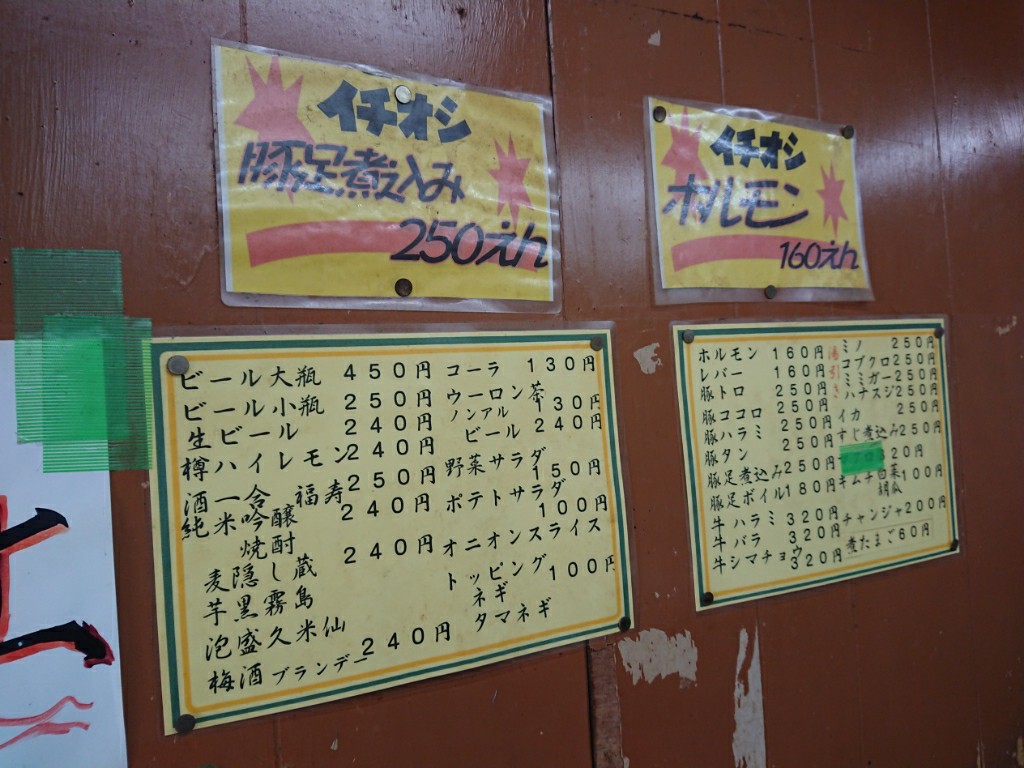 イチオシ
豚足煮込み
250えん
イチオシ
ホルモン
160えん
ビール大瓶 450円
ビール小瓶 250円
生ビール 240円
樽ハイレモン 240円
酒一合 福寿 250円
純米吟醸 240円
焼酎
麦隠し蔵 240円
芋黒霧島
泡盛久米仙
梅酒ブランデー 240円
コーラ 130円
ウーロン茶 130円
ノンアル
ビール 240円
野菜サラダ 150円
ポテトサラダ 100円
オニオンスライス
トッピング 100円
ネギ
タマネギ
ホルモン 160円
レバー 160円
豚トロ 250円
豚ココロ 250円
豚ハラミ 250円
豚タン
豚足煮込み 250円
豚足ボイル 180円
牛ハラミ 320円
牛バラ 320円
牛シマチョウ 320円
湯引き
ミノ 250円
コブクロ 250円
ミミガー 250円
ハナスジ 250円
イカ 250円
すじ煮込み 250円
320円
キムチ 白菜 100円
胡瓜
チャンジャ 200円
煮たまご 60円